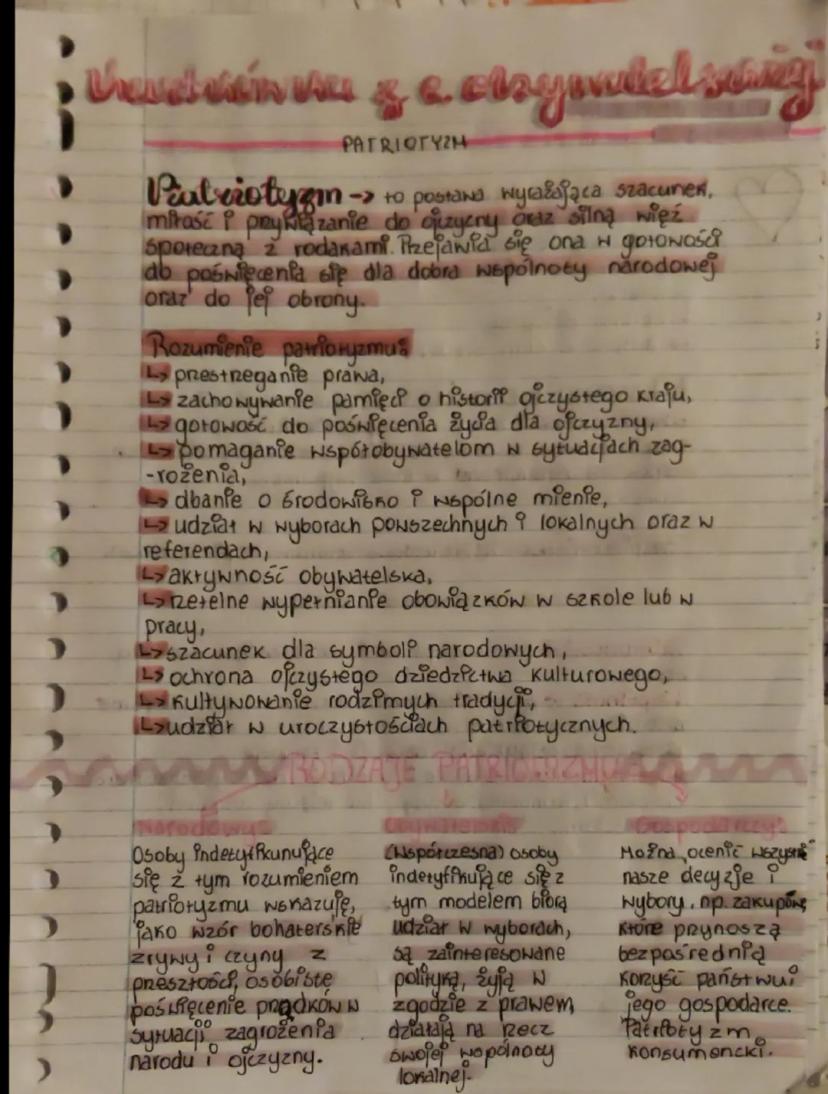 PATRIOTYZM
Patriotyzm -> to postawa wyrażająca szacunek,
miłość i przywiązanie do ojczyzny oraz silną więź
społeczną z rodakami. Przejawia się ona w gotowości
do poświęcenia się dla dobra wspólnoty narodowej
oraz do jej obrony.
Rozumienie patriotyzmu:
↳ prestreganie prawa,
↳ zachowywanie pamięci o historii ojczystego kraju,
↳ gotowość do poświęcenia życia dla ojczyzny,
↳ pomaganie współobywatelom w sytuacjach zag-
-rożenia,
↳ dbanie o środowisko i wspólne mienie,
↳ udział w wyborach powszechnych i lokalnych oraz w
referendach,
↳ aktywność obywatelska,
↳ rzetelne wypełnianie obowiązków w szkole lub w
pracy,
↳ szacunek dla symboli narodowych,
↳ ochrona ojczystego dziedzictwa kulturowego,
↳ kultywowanie rodzimych tradycji,
↳ udział w uroczystościach patriotycznych.
RODZAJE PATRIOTYZMU
Narodowy:
Osoby indetyfikunujące
się z tym rozumieniem
patriotyzmu wskazuję,
jako wzór bohaterskie
zrywy i czyny z
przeszłości, osobiste
poświęcenie przodków w
sytuacji zagrożenia
narodu i ojczyzny.
(współczesna) osoby
indetyfikujące się z
tym modelem biorą
udział w wyborach,
są zainteresowane
polityką, żyją w
zgodzie z prawem,
działają na rzecz
swojej wspólnoty
lokalnej.
Gospodarczy:
Można ocenić wszystkie
nasze decyzje i
wybory, np. zakupowe,
które przynoszą
bezpośrednią
korzyść państwu i
jego gospodarce.
Patriotyzm
konsumencki.